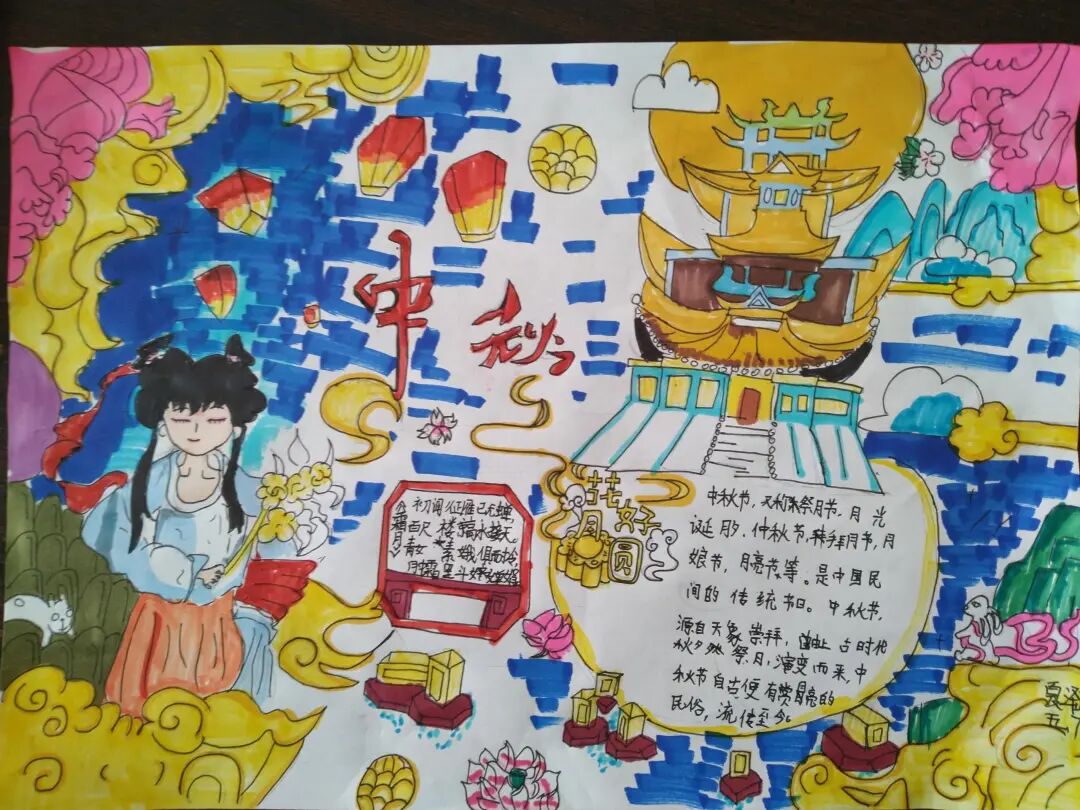 中秋
《霜月》
初闻征雁已无蝉
百尺楼高水接天
青女素娥俱
月中霜里斗婵娟
花好
月圆
中秋节，又称祭月节，月光
诞、月夕、仲秋节、拜月节，月
娘节，月亮节，等。是中国民
间的传统节日。中秋节，
源自天象崇拜，由上古时代
秋夕祭月，演变而来，中
秋节自古便有赏月的
民俗，流传至今。
夏泽
五